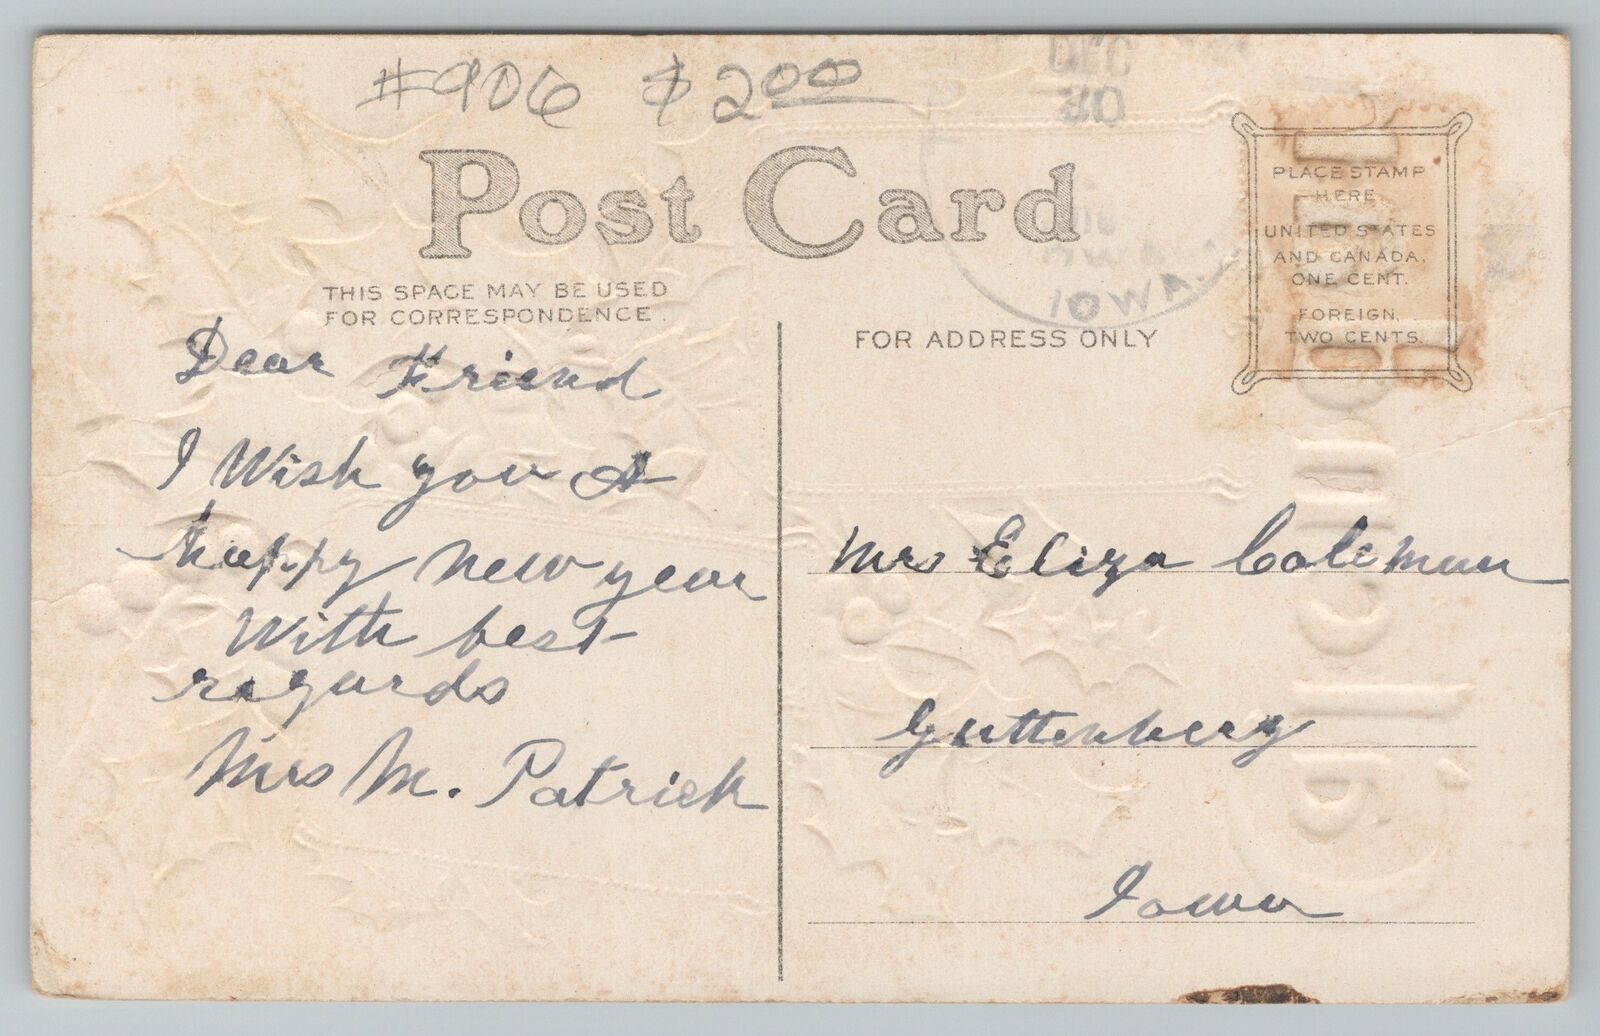 #906 $2.00
DEC
Post Card
THIS SPACE MAY BE USED
FOR CORRESPONDENCE.
IOWA.
FOR ADDRESS ONLY
PLACE STAMP
HERE
UNITED STATES
AND CANADA,
ONE CENT.
FOREIGN,
TWO CENTS.
Dear Friend
I Wish you A
happy new year
With best
regards
Mrs M. Patrick
Mrs Eliza Coleman
Guttenberg
Iowa